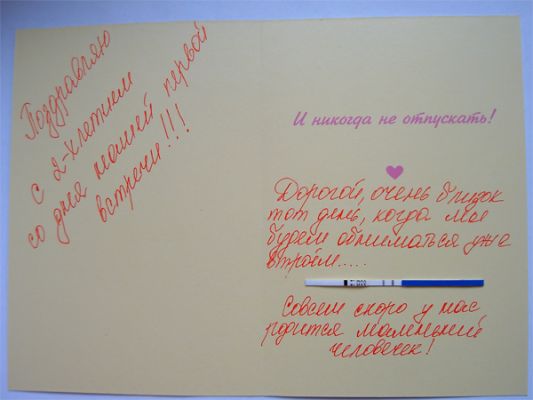 Поздравляю
с 2-хлетием
со дня нашей первой
встречи!!!
И никогда не отпускать!
Дорогой, очень близок
тот день, когда мы
будем обниматься уже
втроём.....
Совсем скоро у нас
родится маленький
человечек!